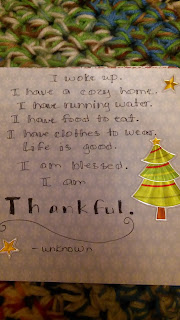 I woke up.
I have a cozy home.
I have running water.
I have food to eat.
I have clothes to wear.
Life is good.
I am blessed.
I am
Thankful.
- unknown